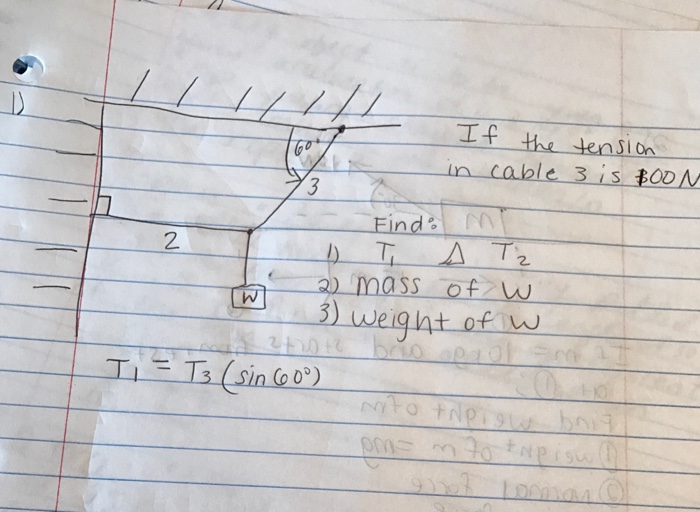 1)
60°
3
2
W
If the tension
in cable 3 is 800N
Find:
1) T₁ & T₂
2) mass of W
3) weight of W
T₁ = T₃ (sin 60°)